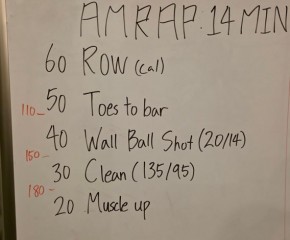 AMRAP: 14 MIN
60 ROW (cal)
110-
50 Toes to bar
40 Wall Ball Shot (20/14)
150-
30 Clean (135/95)
180-
20 Muscle up